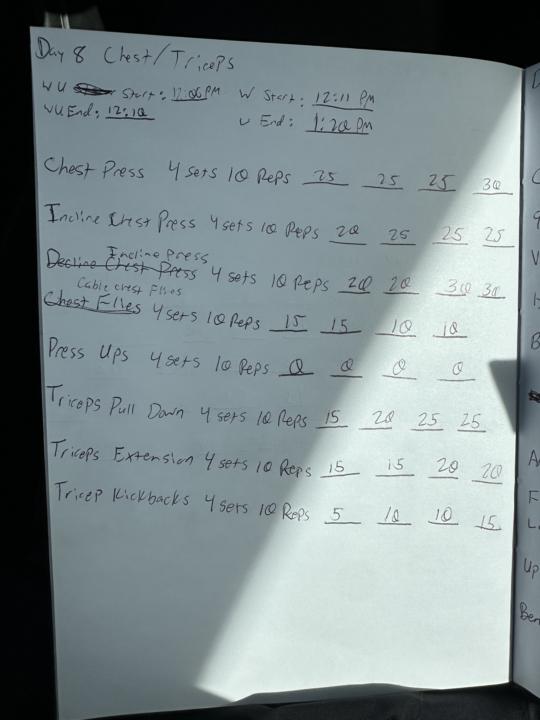 Day 8 Chest/Triceps
WU Start: 12:00 PM W Start: 12:11 PM
WU End: 12:10 W End: 1:20 PM
Chest Press 4 sets 10 Reps 25 25 25 30
Incline Chest Press 4 sets 10 Reps 20 25 25 25
Incline Press
Decline Chest Press 4 sets 10 Reps 20 20 30 30
Cable chest Flies
Chest Flies 4 sets 10 Reps 15 15 10 10
Press Ups 4 sets 10 Reps 0 0 0 0
Triceps Pull Down 4 sets 10 Reps 15 20 25 25
Triceps Extension 4 sets 10 Reps 15 15 20 20
Tricep Kickbacks 4 sets 10 Reps 5 10 10 15
Up
Ben